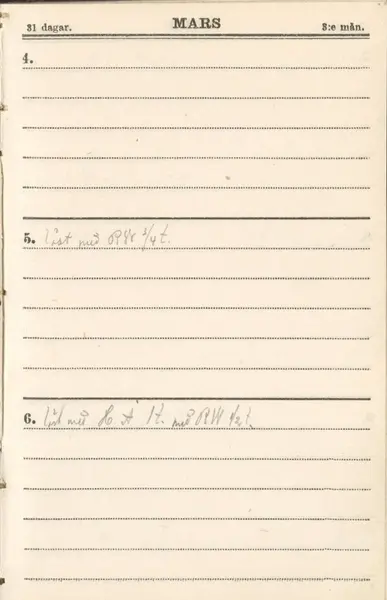 31 dagar. MARS 3:e mån.
4.
5. läst med RW 3/4 t.
6. läst med H A 1 t. med RW 1/2 t.